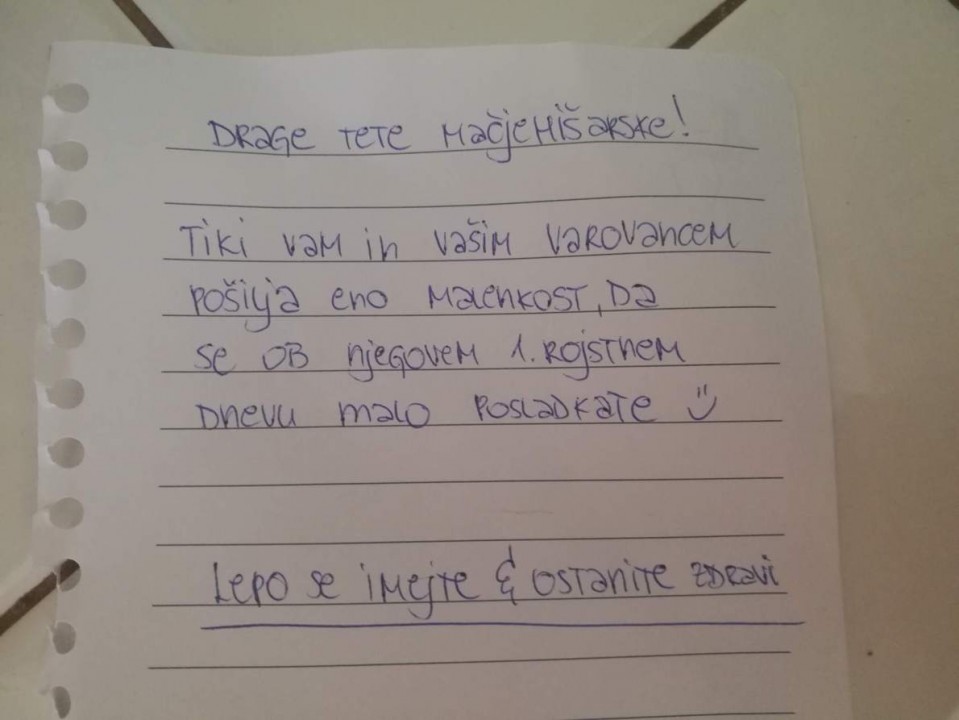 Drage tete mačjehišarske!
Tiki vam in vašim varovancem
pošilja eno malenkost, da
se ob njegovem 1. rojstnem
dnevu malo posladkate :)
Lepo se imejte & ostanite zdravi